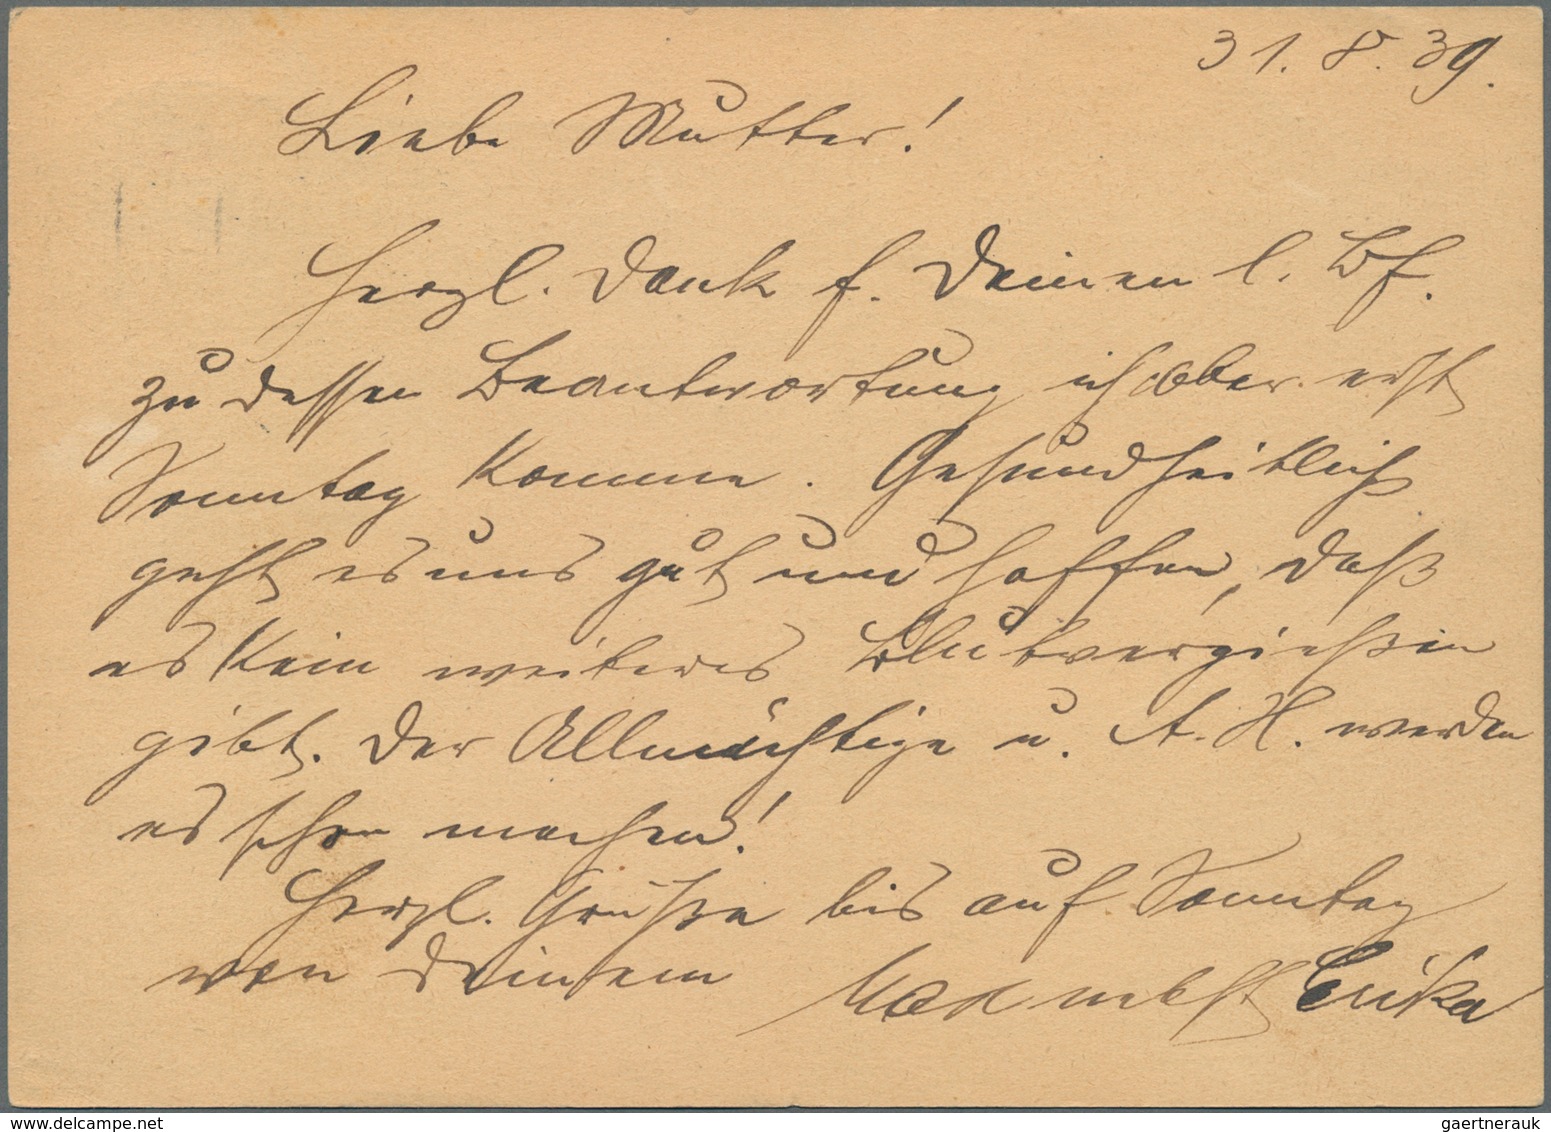 31. 8. 39.
Liebe Mutter!
Herzl. Dank f. Deinen l. Bf.
zu dessen Beantwortung ich aber erst
Sonntag komme. Gesundheitlich
geht es uns gut und hoffen, daß
es kein weiteres Blutvergießen
gibt. Der Allmächtige u. A. H. werden
es schon machen!
Herzl. Grüße bis auf Sonntag
von Deinem Max nebst Erika
delcampe.net
gaertnerauk